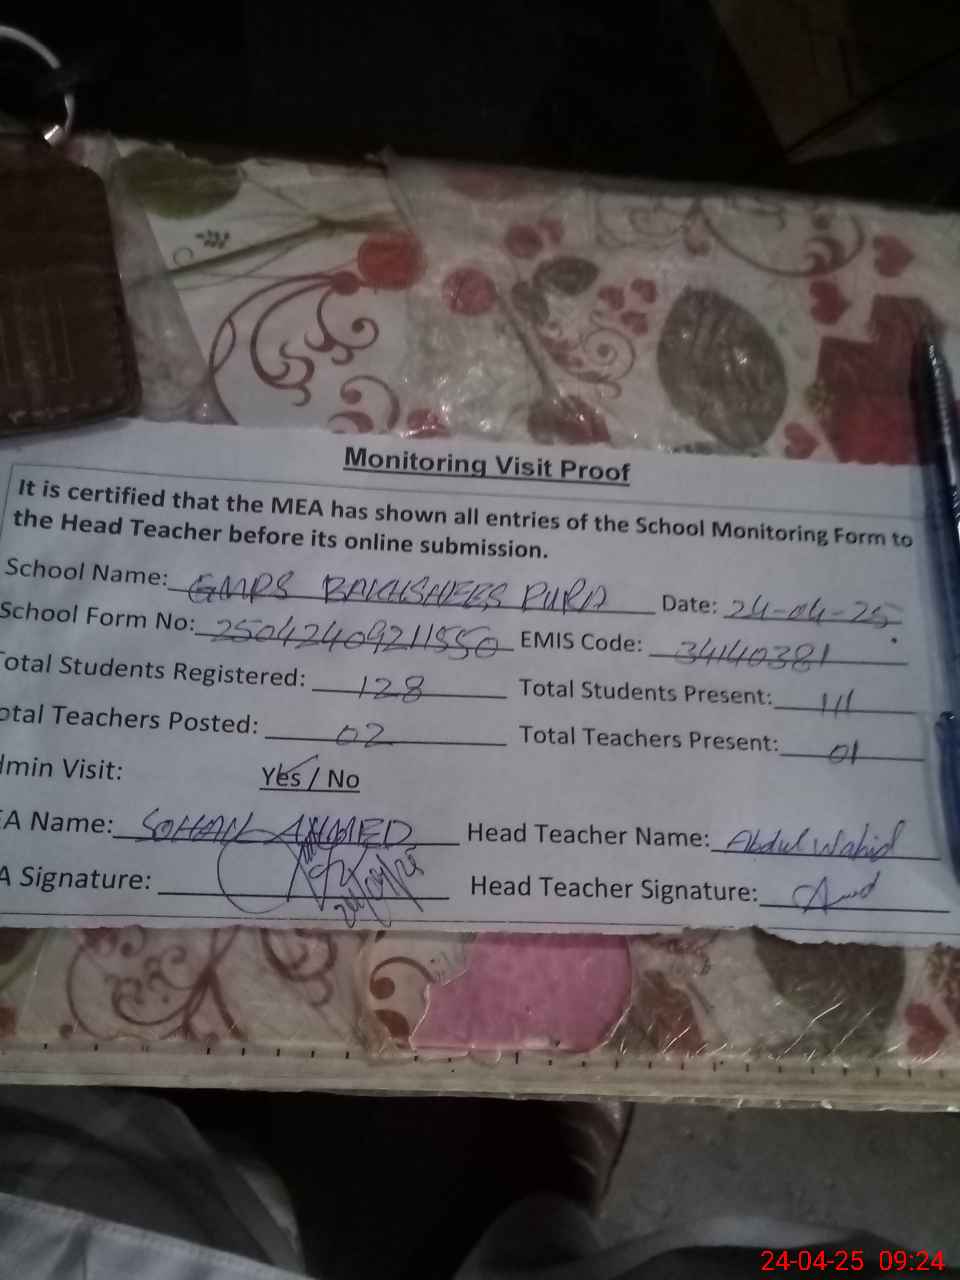 Monitoring Visit Proof
It is certified that the MEA has shown all entries of the School Monitoring Form to
the Head Teacher before its online submission.
School Name: GMPS BAKHSHEES PURA Date: 24-04-25
School Form No: 25042409211550 EMIS Code: 34140381
otal Students Registered: 128 Total Students Present: 111
otal Teachers Posted: 02 Total Teachers Present: 01
dmin Visit: Yes / No
EA Name: SOHAIL AHMED Head Teacher Name: Abdul Wahid
A Signature: 24/04/25 Head Teacher Signature:
24-04-25 09:24